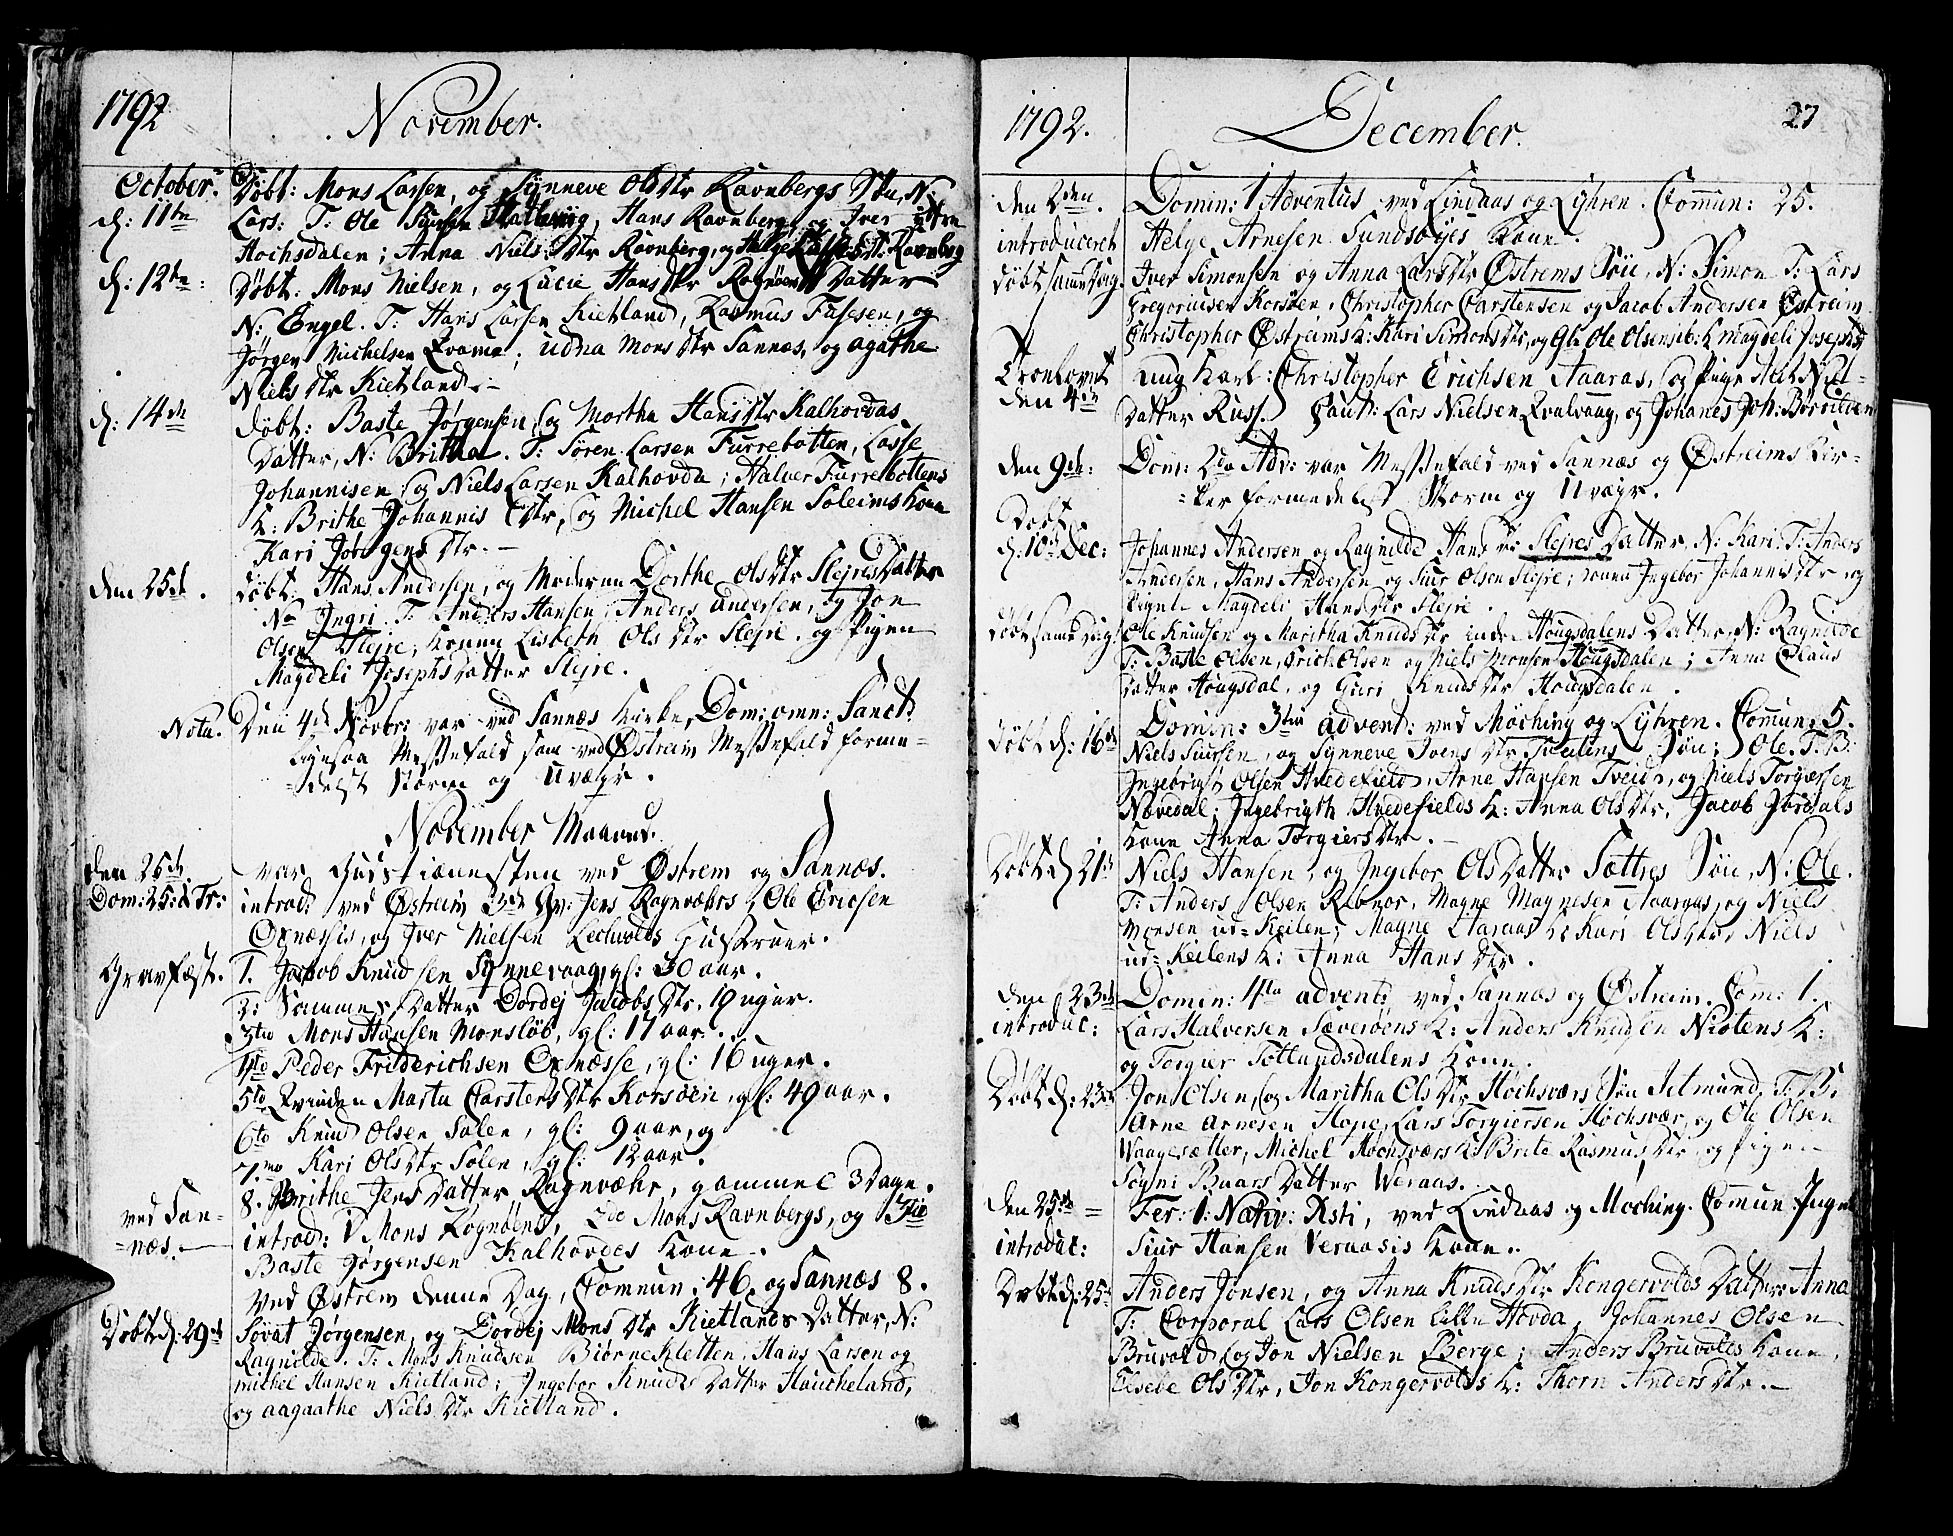 1792
November.
October:
Døbt: Mons Larsen, og Synneve Olsdtr Ravnbergs Søn, N:
d: 11te
Lars: T: Ole Siursen Hatlevig, Hans Ravnberg, og Iver ytre
Hochsdalen; Anna Niels dtr Ravnberg, og Ravnberg
d: 12te:
Døbt: Mons Nielsen, og Lucie Hans dtr Rognøens Datter
N: Engel. T: Hans Larsen Kietland, Rasmus Fasesen, og
Jørgen Michelsen Qvamme; Udna Mons dtr Sannæs, og Agathe
Niels dtr Kietland. -
d: 14de
Døbt: Baste Jørgensen, og Martha Hans dtr Kalhovdas
Datter, N: Britha. T: Søren Larsen Furrebotten, Lasse
Johannisen, og Niels Larsen Kalhovda; Halver Furrebottens
K: Brithe Johannis dtr, og Michel Hansen Soleims Kone
Kari Jørgens dtr. -
den 25de.
døbt: Hans Andersen, og Moderen Dorthe Olsdtr Slejres Datter
Na Ingri. T: Anders Hansen, Anders Andersen, og Jon
Olsen Slejre, Konen Lisbeth Ols dtr Slejre. og Pigen
Magdeli Josephs datter Slejre.
Nota. Den 4de Novbr: var ved Sannæs Kirke, Dom: omn: Sanct:
ligesaa Messefald som ved Østreim Messefald forme=
=delst Storm og Uvejr.
November Maaned.
den 25de.
Dom: 25: p Tr:
var Gudstienesten ved Østrem og Sannæs.
introd: ved Østreim Jens Ragnvæhrs Ole Ericsen
Oxnæssis, og Iver Nielsen Hustruer.
Gravfæst.
1. Jacob Knudsen Synnevaag, gl: 30 aar.
2: Sommers Datter Dordej Jacobs dtr, 19 uger.
3tio Mons Hansen Monsløb, gl: 17 aar.
4to Peder Friderichsen Oxnæsse, gl: 16 uger.
5to Qvinden Marta Carstens dtr Korsøen, gl: 49 aar.
6to Knud Olsen Solen, gl: 9 aar, og
7mo Kari Ols dtr Solen, gl: 12 aar.
8. Brithe Jens Datter Ragnvæhr, gammel 3 Dage.
ved San=
=næs. -
introd: 1 Mons Rognøens, 2do Mons Ravnbergs, og 3tio
Baste Jørgensen Kalhovdes Kone.
ved Østrem denne Dag, Commun: 46, og Sannæs 8.
Døbt d: 29de
Sovat Jørgensen, og Dordej Mons dtr Kietlands Datter, N:
Ragnilde. T: Mons Knudsen Biørnekletten, Hans Larsen og
Michel Hansen Kietland; Ingebor Knuds Datter Haucheland,
og Aagaathe Niels dtr Kietland.
1792.
December.
27
den 2den.
Domin: 1 Adventus ved Lindaas og Lyhren. Commun: 25.
introduceret
Helge Arnesen Sundsøyes Kone.
døbt samme Dag.
Iver Simonsen og Anna Larsdtr Østrems Søn, N: Simon T: Lars
Gregoriusen Korsøen, Christopher Carstensen og Jacob Andersen Østreim
Christopher Østreims K: Kari Simonsdtr, og Ole Olsen K: Magdeli Josephsd
Troelovet
den 4de
ung Karl: Christopher Erichsen Aaraas, og Pige Niels=
Datter Russ. Caut: Lars Nielsen Qvalvaag, og Johanes Joh:
den 9de:
Dom: 2da Adv: var Messefald ved Sannæs og Østreims Kir=
=ker formedelst Storm og Uvejr.
Døbt
d: 10de Dec:
Johannes Andersen og Ragnilde Hans dtr Slejres Datter, N: Kari. T: Anders
Andersen, Hans Andersen og Siur Olsen Slejre; Konen Ingebor Johannis dtr og
Pigen Magdeli Hans dtr Slejre.
døbt samme Dag:
Ole Knudsen og Maritha Knuds dtr indre Hougsdalens Datter, N: Ragnilde
T: Baste Olsen, Erich Olsen og Niels Monsen Hougsdalen; Anna Claus
datter Hougsdal, og Guri Knuds dtr Hougsdalen.
Domin: 3tia Advent: ved Moching og Lyhren. Commun: 5.
døbt d: 16de
Niels Siursen, og Synneve Ivers dtr Tveitens Søn; Ole. T: B:
Ingebrigt Olsen Hvedefield, Arne Hansen Tveid, og Niels Torgersen
Nævedal; Ingebrigth Hvedefields K: Anna Olsdtr, Jacob Jørdals
Kone Anna Torgiers dtr. -
Døbt d 21de
Niels Hansen, og Ingebor Ols Datter Sættres Søn, N: Ole.
T: Anders Olsen Rebnor, Magne Magnesen Aaraas, og Niels
Monsen ud=Keilen; Magne Aaraas K: Kari Olsdtr, Niels
ud=Keilens K: Anna Hans dtr.
den 23de
Domin: 4ta Advent: ved Sannæs og Østreim. Com: 1.
introduc:
Lars Halversen Særverøens K: Anders Knudsen Nistens K:
og Torgier Totlundsdalens Kone.
Døbt d: 23de
Jon Olsen, og Maritha Ols dtr Høchsværs Søn Aetmund, T: B:
Arne Arnesen Hope, Lars Torgiersen Høchsvær, og Ole Olsen
Waagesætter, Michel Høchsværs K: Brite Rasmus dtr, og Pigen
Sygni Baars Datter Weraas.
den 25de =
Fer: 1: Nativ: Xsti, ved Lindaas og Moching. Commun: Ingen
introduc:
Siur Hansen Veraasis Kone.
Døbt d: 25de
Anders Jonsen, og Anna Knuds dtr Kongervolds Datter Anna
T: Corporal Lars Olsen Lille Hovda, Johannes Olsen
Bruvold, og Jon Nielsen Berge; Anders Bruvolds Kone,
Elsebe Ols dtr, Jon Kongervolds K: Thorn Anders dtr. -